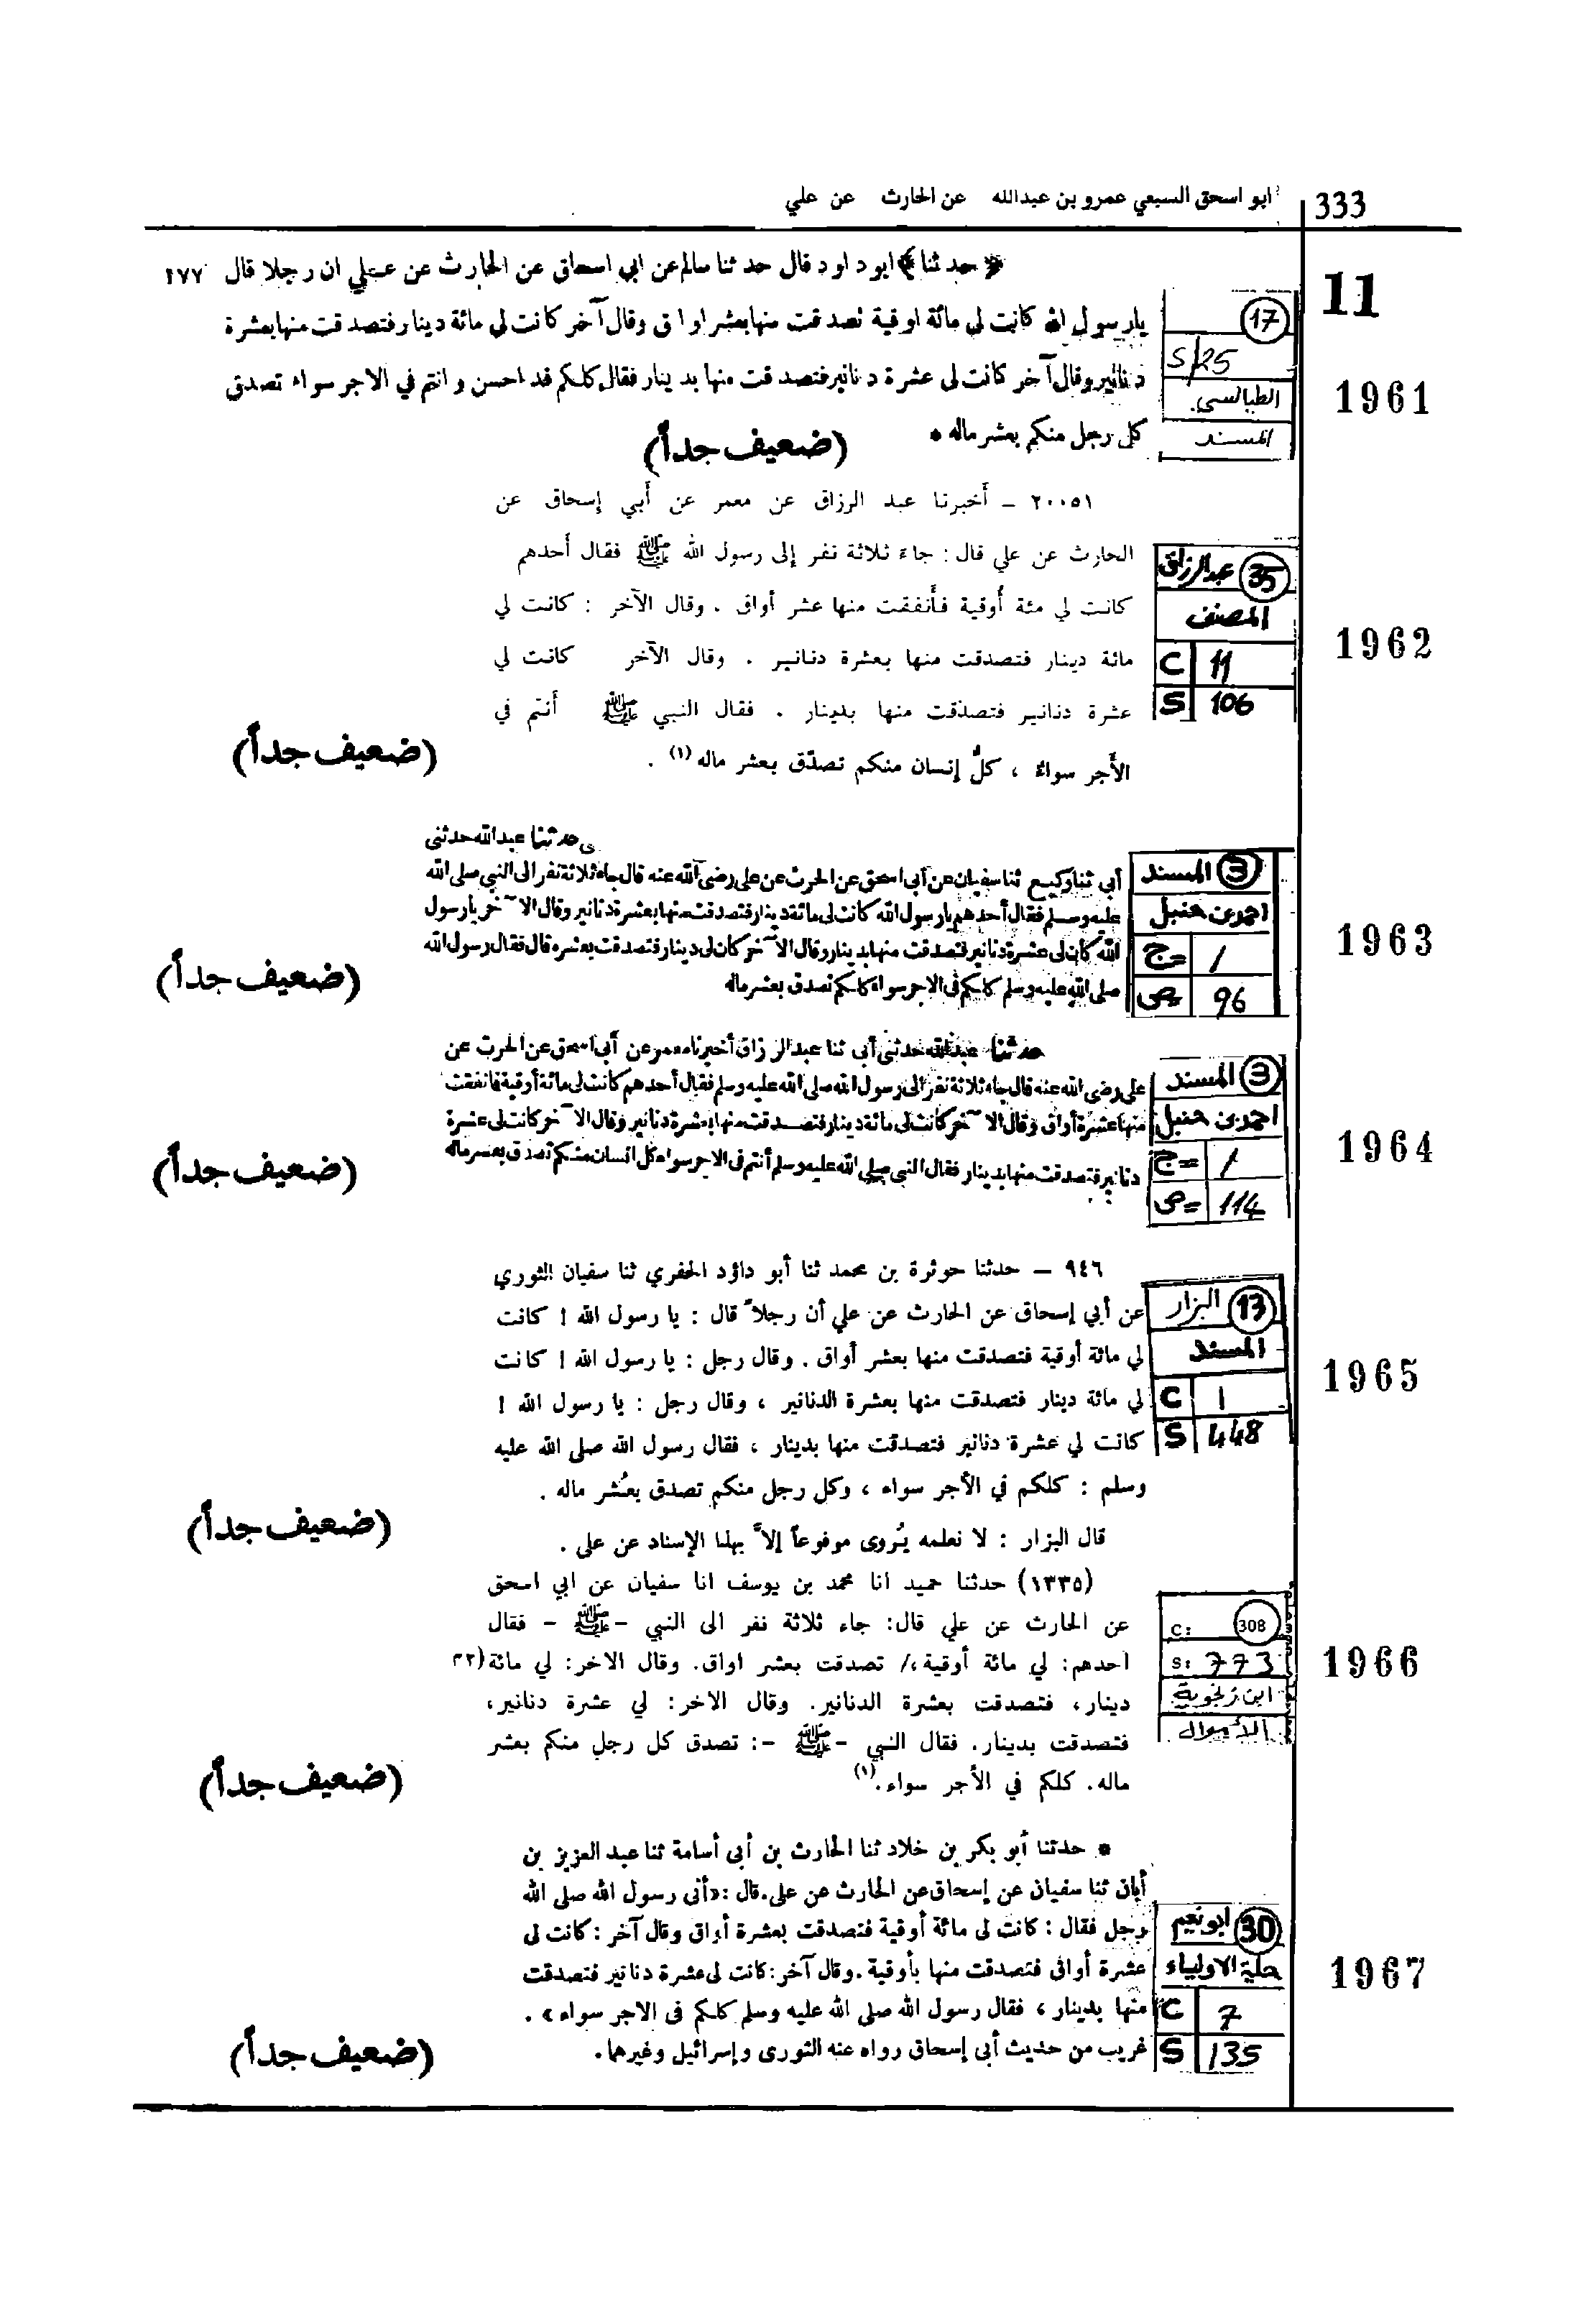 333
ابو اسحق السبعي عمرو بن عبدالله عن الحارث عن علي
11
﴿ حدثنا ﴾ ابوداود قال حدثنا سالم عن ابي اسحاق عن الحارث عن علي ان رجلا قال ١٧٧
يارسول الله كانت لي مائة اوقية تصدقت منها بعشر اواق وقال آخر كانت لي مائة دينار فتصدقت منها بعشرة
دنانير وقال آخر كانت لى عشرة دنانير فتصدقت منها بدينار فقال كلكم قد احسن وانتم في الاجر سواء تصدق
كل رجل منكم بعشر ماله *
(ضعيف جداً)
17
S/25
الطيالسي
المسند
1961
٢٠٠٥١ – أخبرنا عبد الرزاق عن معمر عن أبي إسحاق عن
الحارث عن علي قال : جاءَ ثلاثة نفر إلى رسول الله ﷺ فقال أحدهم
كانت لي مئة أوقية فأنفقت منها عشر أواق . وقال الآخر : كانت لي
مائة دينار فتصدقت منها بعشرة دنانير . وقال الآخر كانت لي
عشرة دنانير فتصدقت منها بدينار . فقال النبي ﷺ أنتم في
الأجر سواءٌ ، كلُّ إنسان منكم تصدّق بعشر ماله (١) .
(ضعيف جداً)
35 عبدالرزاق
المصنف
C 11
S 106
1962
ى حدثنا عبدالله حدثنى
أبي ثنا وكيع ثنا سفيان عن أبى اسحق عن الحرث عن على رضى الله عنه قال جاء ثلاثة نفر الى النبى صلى الله
عليه وسلم فقال أحدهم يارسول الله كانت لى مائة دينار فتصدقت منها بعشرة دنانير وقال الآخر يارسول
الله كان لى عشرة دنانير فتصدقت منها بدينار وقال الآخر كان لى دينار فتصدقت بعشره قال فقال رسول الله
صلى الله عليه وسلم كلكم فى الاجر سواء كلكم تصدق بعشر ماله
(ضعيف جداً)
3 المسند
احمد بن حنبل
ج= 1
ص= 96
1963
حدثنا عبدالله حدثنى أبى ثنا عبدالرزاق أخبرنا معمر عن أبى اسحق عن الحرث عن
على رضى الله عنه قال جاء ثلاثة نفر الى رسول الله صلى الله عليه وسلم فقال أحدهم كانت لى مائة أوقية فانفقت
منها عشرة أواق وقال الآخر كانت لى مائة دينار فتصدقت منها بعشرة دنانير وقال الآخر كانت لى عشرة
دنانير فتصدقت منها بدينار فقال النبى صلى الله عليه وسلم أنتم فى الاجر سواء كل انسان منكم تصدق بعشر ماله
(ضعيف جداً)
3 المسند
احمد بن حنبل
ج= 1
ص= 114
1964
٩٤٦ – حدثنا حوثرة بن محمد ثنا أبو داؤد الحفري ثنا سفيان الثوري
عن أبي إسحاق عن الحارث عن علي أن رجلاً قال : يا رسول الله ! كانت
لي مائة أوقية فتصدقت منها بعشر أواق . وقال رجل : يا رسول الله ! كانت
لي مائة دينار فتصدقت منها بعشرة الدنانير ، وقال رجل : يا رسول الله !
كانت لي عشرة دنانير فتصدقت منها بدينار ، فقال رسول الله صلى الله عليه
وسلم : كلكم في الأجر سواء ، وكل رجل منكم تصدق بعُشر ماله .
قال البزار : لا نعلمه يُروى موفوعاً إلاَّ بهذا الإسناد عن علي .
(ضعيف جداً)
13 البزار
المسند
C 1
S 448
1965
(١٣٣٥) حدثنا حميد انا محمد بن يوسف انا سفيان عن ابي اسحق
عن الحارث عن علي قال: جاء ثلاثة نفر الى النبي – ﷺ – فقال
احدهم: لي مائة أوقية،/ تصدقت بعشر اواق. وقال الاخر: لي مائة
دينار، فتصدقت بعشرة الدنانير. وقال الاخر: لي عشرة دنانير،
فتصدقت بدينار. فقال النبي – ﷺ –: تصدق كل رجل منكم بعشر
ماله. كلكم في الأجر سواء.(١)
(ضعيف جداً)
C: 308
S: 773
ابن زنجوية
الأموال
1966
* حدثنا أبو بكر بن خلاد ثنا الحارث بن أبى أسامة ثنا عبد العزيز بن
أبان ثنا سفيان عن إسحاق عن الحارث عن على. قال : «أتى رسول الله صلى الله
رجل فقال : كانت لى مائة أوقية فتصدقت بعشرة أواق وقال آخر : كانت لى
عشرة أواق فتصدقت منها بأوقية . وقال آخر : كانت لى عشرة دنانير فتصدقت
منها بدينار ، فقال رسول الله صلى الله عليه وسلم كلكم فى الاجر سواء » .
غريب من حديث أبى إسحاق رواه عنه الثورى وإسرائيل وغيرهما .
(ضعيف جداً)
30 ابو نعيم
حلية الاولياء
C 7
S 135
1967